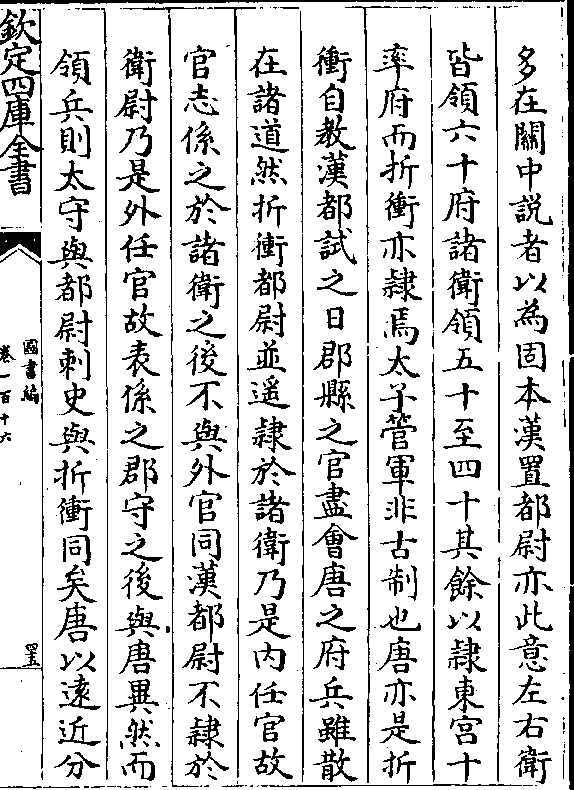 多在關中說者以為固本漢置都尉亦此意左右衛
皆領六十府諸衛領五十至四十其餘以隸東宮十
率府而折衝亦隸焉太子管軍非古制也唐亦是折
衝自教漢都試之日郡縣之官盡會唐之府兵雖散
在諸道然折衝都尉並遥隸於諸衛乃是内任官故
官志係之於諸衛之後不與外官同漢都尉不隸於
衛尉乃是外任官故表係之郡守之後與唐異然而
領兵則太守與都尉刺史與折衝同矣唐以遠近分
欽定四庫全書
圖書編
卷一百十六